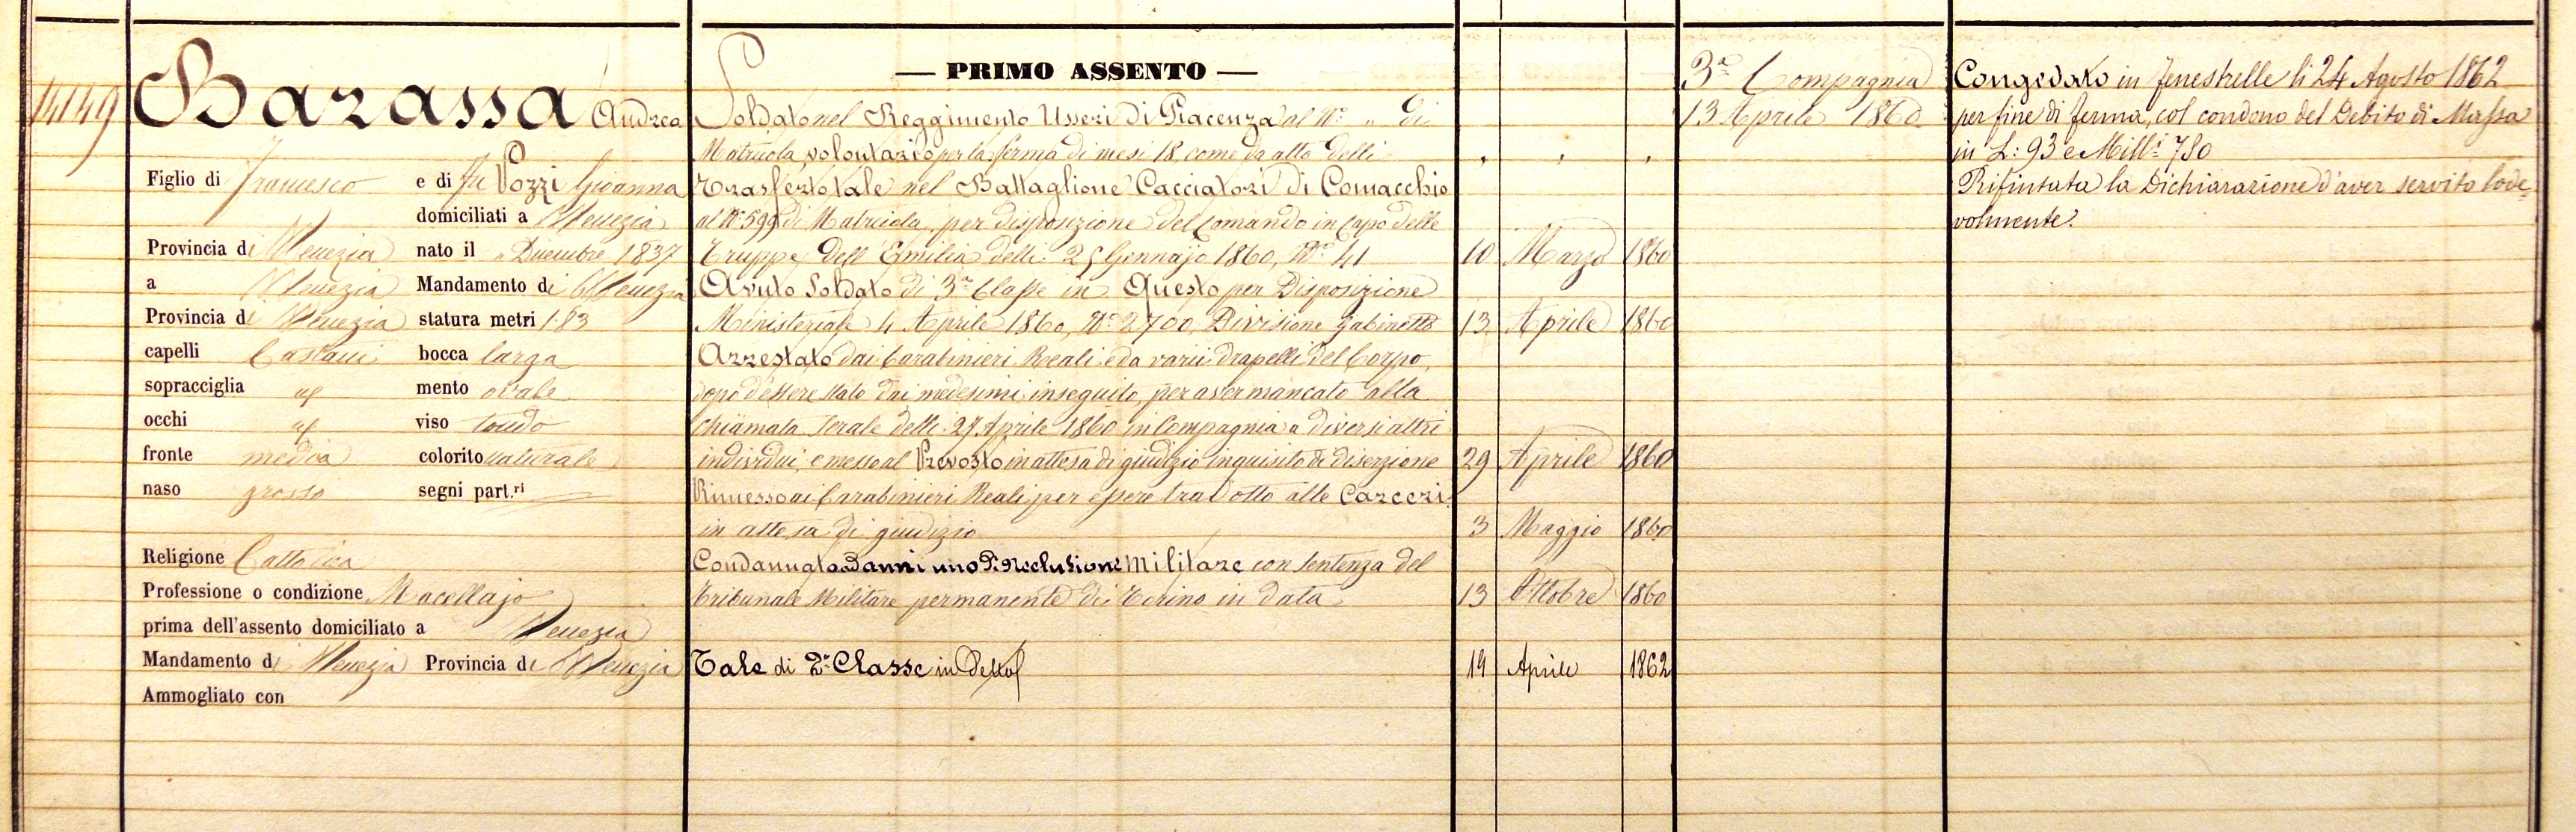 14149
Barassa Andrea
Figlio di Francesco e di fu Pozzi Giovanna
domiciliati a Venezia
Provincia di Venezia nato il " Dicembre 1837
a Venezia Mandamento di Venezia
Provincia di Venezia statura metri 1.83
capelli Castani bocca larga
sopracciglia mento ovale
occhi viso tondo
fronte media colorito naturale
naso grosso segni part.ri
Religione Cattolica
Professione o condizione Macellajo
prima dell'assento domiciliato a Venezia
Mandamento di Venezia Provincia di Venezia
Ammogliato con
— PRIMO ASSENTO —
Soldato nel Reggimento Usseri di Piacenza al N.° " di
Matricola volontario per la ferma di mesi 18, come da atto delli
Trasferto tale nel Battaglione Cacciatori di Comacchio
al N.° 599 di Matricola per disposizione del Comando in Capo delle
Truppe dell'Emilia delli 25 Gennajo 1860, N.° 41 10 Marzo 1860
Avuto Soldato di 3.a Classe in Questo per Disposizione
Ministeriale 4 Aprile 1860, N.° 2700, Divisione Gabinetto 13 Aprile 1860
Arrestato dai Carabinieri Reali e da varii drapelli del Corpo,
dopo d'essere stato dai medesimi inseguito, per aver mancato alla
chiamata serale delli 27 Aprile 1860 in Compagnia a diversi altri
individui, e messo al Prevosto in attesa di giudizio inquisito di diserzione 29 Aprile 1860
Rimesso ai Carabinieri Reali per essere tradotto alle Carceri
in attesa di giudizio 3 Maggio 1860
Condannato ad anni uno di reclusione Militare con sentenza del
Tribunale Militare permanente di Torino in data 13 Ottobre 1860
Tale di 2.a Classe in Detto 19 Aprile 1862
3.a Compagnia
13 Aprile 1860
Congedato in Fenestrelle li 24 Agosto 1862
per fine di ferma, col condono del Debito di Massa
in L: 93 e Mill.i 780
Rifiutata la Dichiarazione d'aver servito lode
volmente.